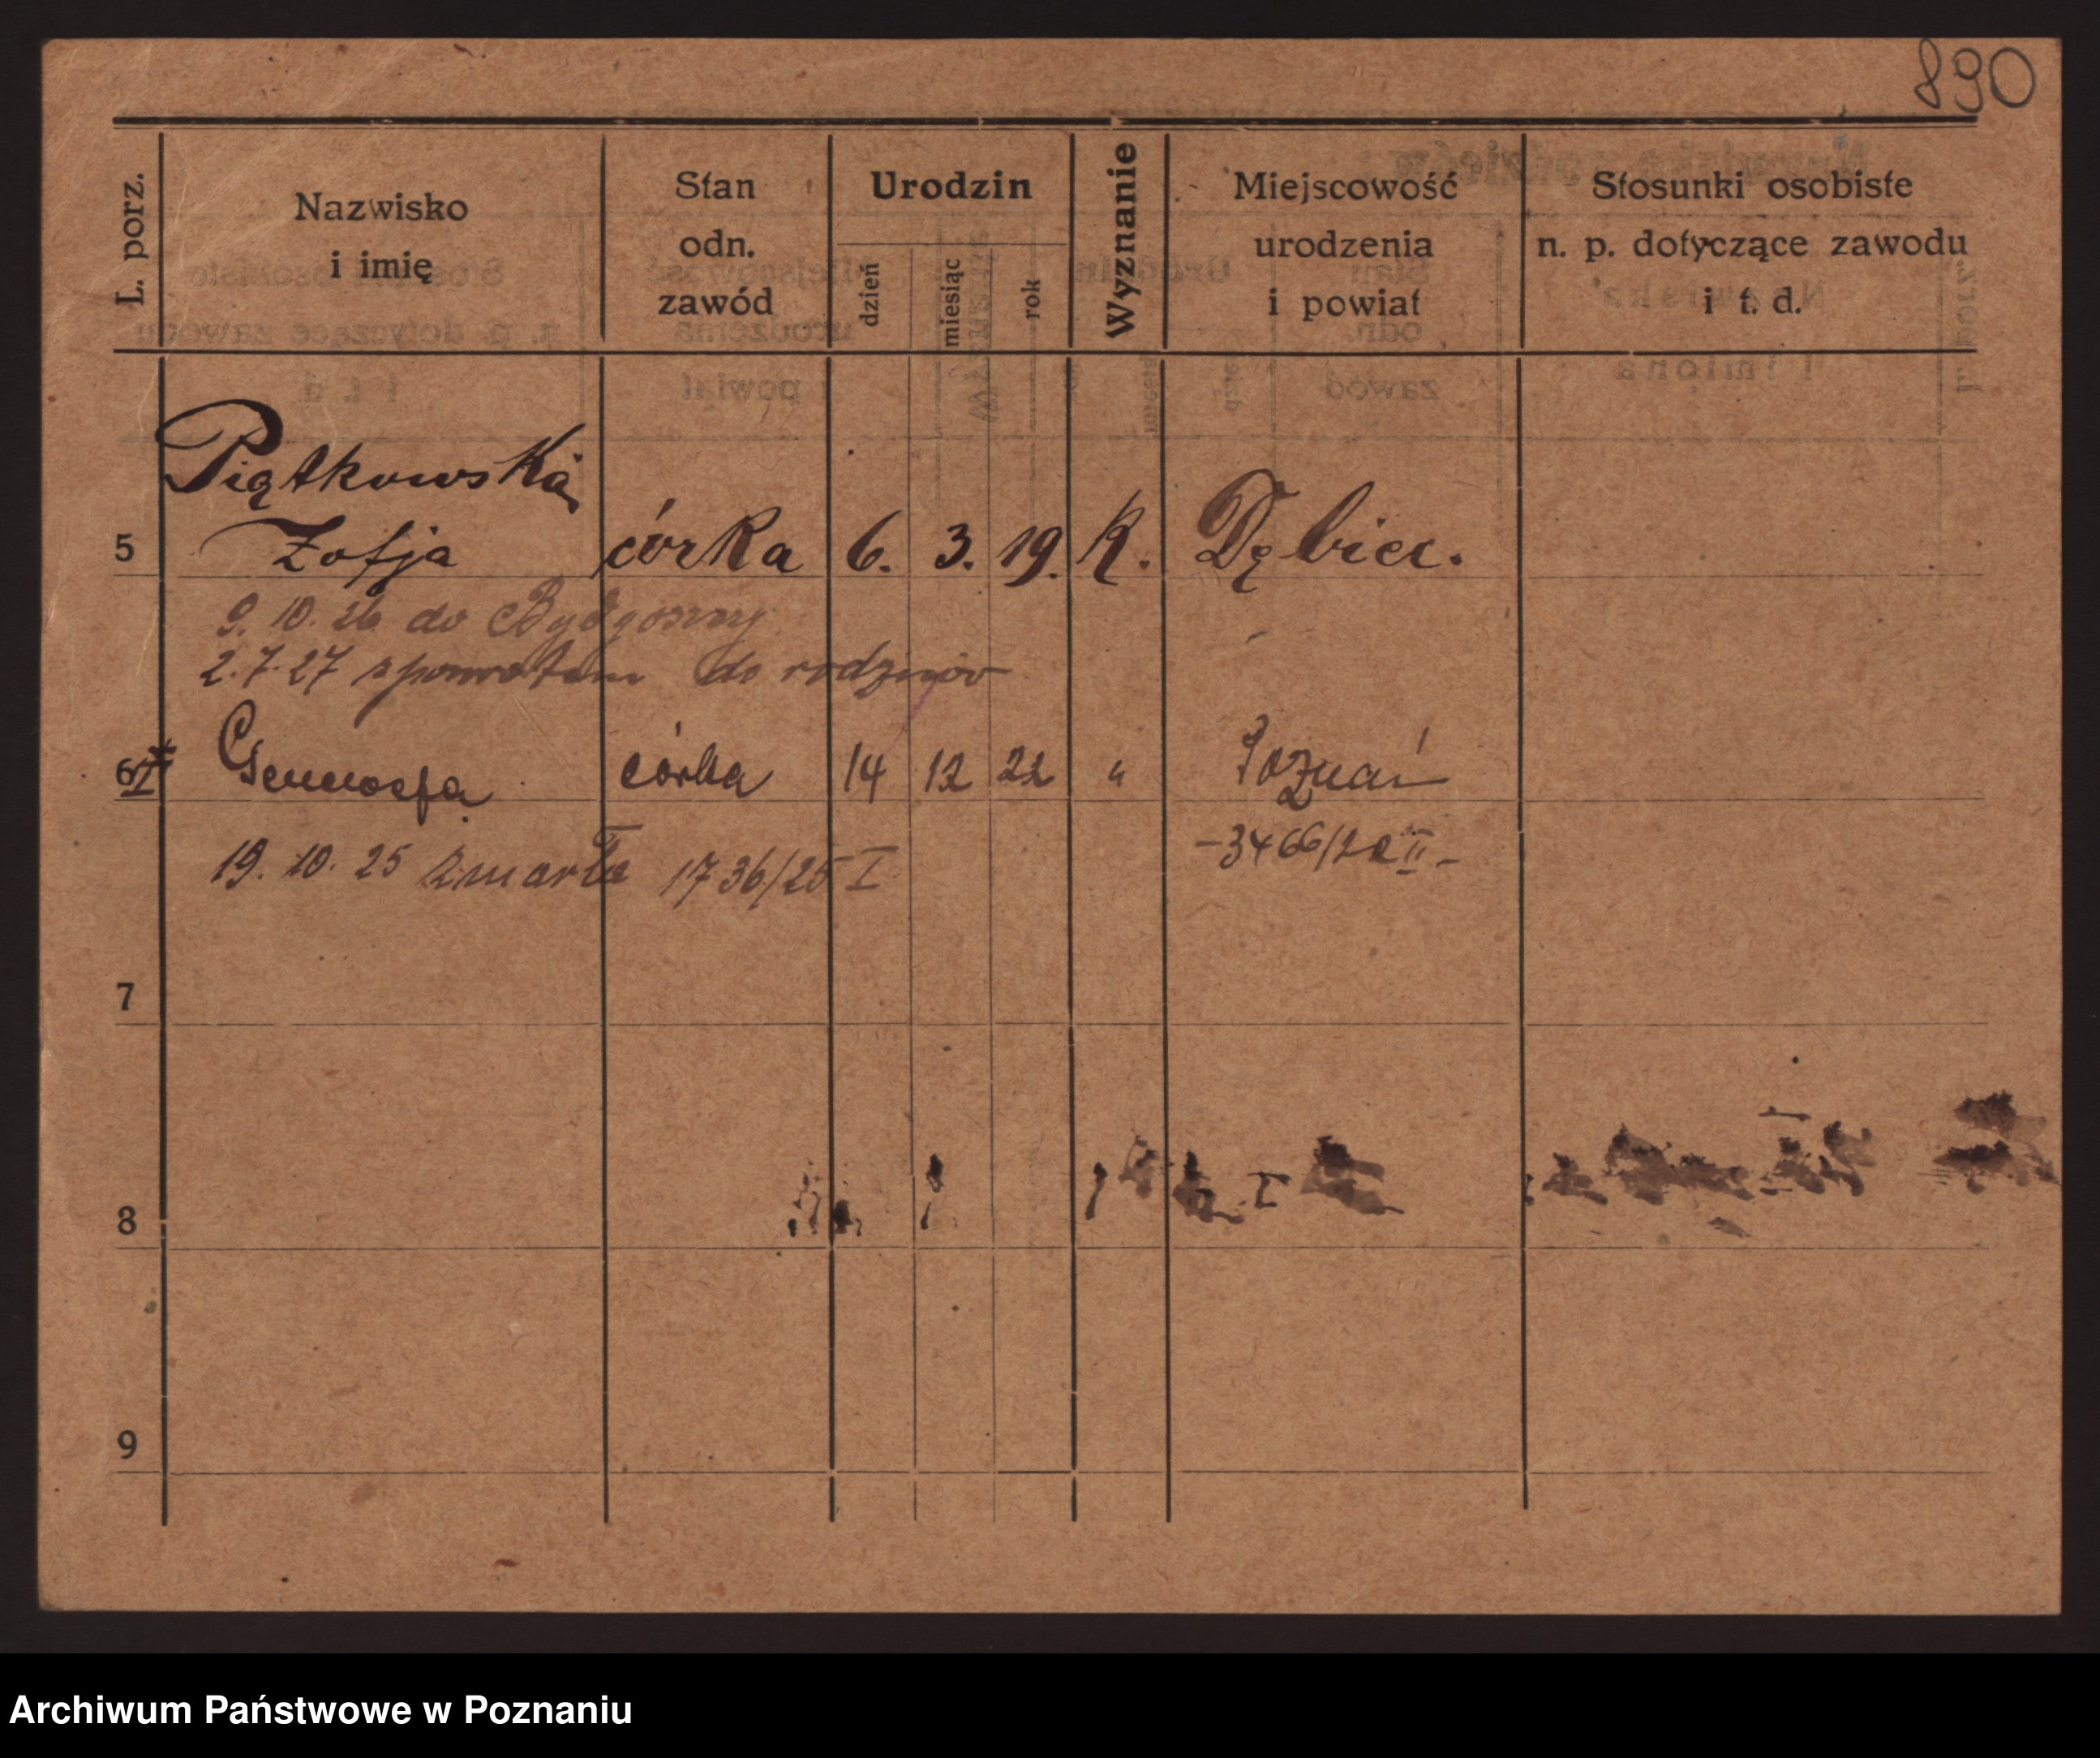 890
L. porz.
Nazwisko
i imię
Stan
odn.
zawód
Urodzin
dzień
miesiąc
rok
Wyznanie
Miejscowość
urodzenia
i powiat
Stosunki osobiste
n. p. dotyczące zawodu
i t. d.
Piątkowska
5 Zofja córka 6. 3. 19. K. Dębiec.
9. 10. 26 do Bydgoszczy
2.7.27 spowrotem do rodziców
6 córka 14 12 22 " Poznań
19. 10. 25 zmarła 1736/25 I
-3466/22 II-
7
8
9
Archiwum Państwowe w Poznaniu